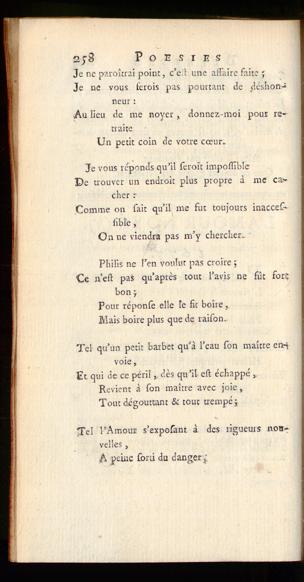 258 POESIES
Je ne paroîtrai point, c'est une affaire faite ;
Je ne vous ferois pas pourtant de déshon-
neur :
Au lieu de me noyer, donnez-moi pour re-
traite
Un petit coin de votre cœur.
Je vous réponds qu'il seroit impossible
De trouver un endroit plus propre à me ca-
cher :
Comme on sait qu'il me fut toujours inacces-
sible,
On ne viendra pas m'y chercher.
Philis ne l'en voulut pas croire ;
Ce n'est pas qu'après tout l'avis ne fût fort
bon ;
Pour réponse elle le fit boire,
Mais boire plus que de raison.
Tel qu'un petit barbet qu'à l'eau son maître en-
voie,
Et qui de ce péril, dès qu'il est échappé,
Revient à son maître avec joie,
Tout dégouttant & tout trempé ;
Tel l'Amour s'exposant à des rigueurs nou-
velles,
A peine sorti du danger ;